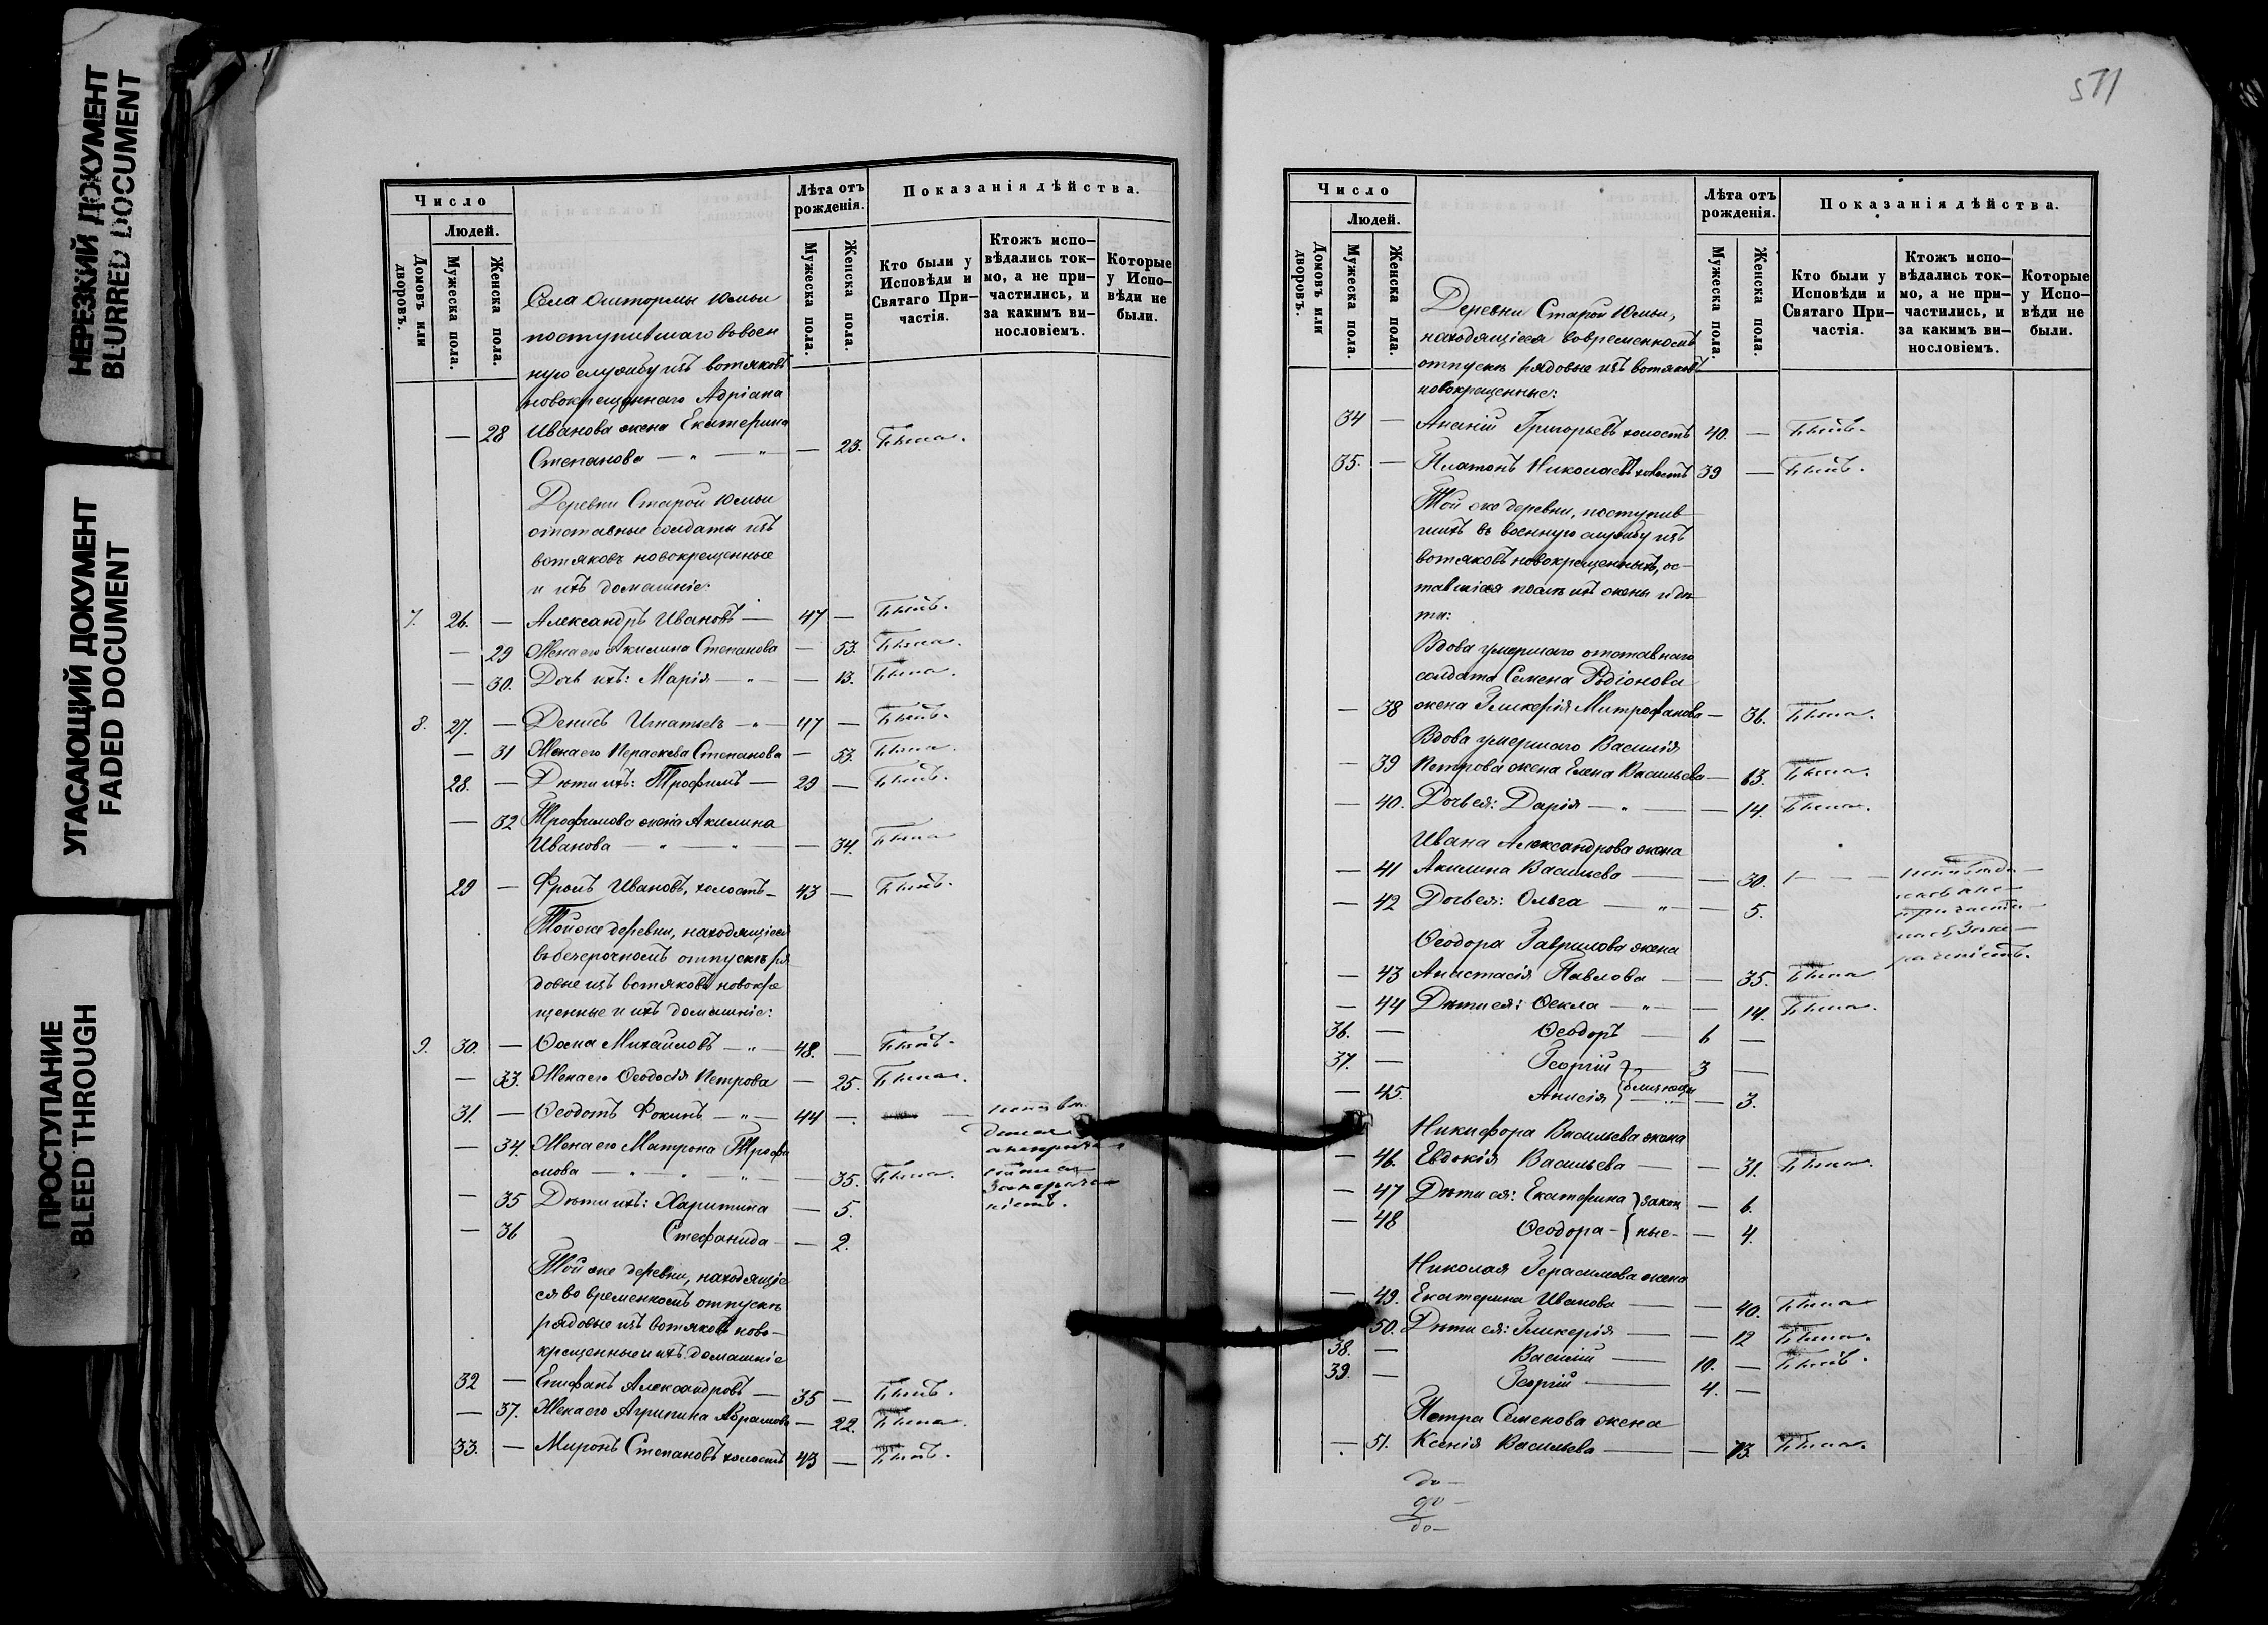 НЕРЕЗКИЙ ДОКУМЕНТ
BLURRED DOCUMENT
УГАСАЮЩИЙ ДОКУМЕНТ
FADED DOCUMENT
ПРОСТУПАНИЕ
BLEED THROUGH
Число
Людей.
Домовъ или дворовъ.
Мужеска пола.
Женска пола.
Лѣта отъ рожденія.
Мужеска пола.
Женска пола.
Показанія дѣйства.
Кто были у Исповѣди и Святаго При-частія.
Ктожъ испо-вѣдались ток-мо, а не при-частились, и за какимъ ви-нословіемъ.
Которые у Испо-вѣди не были.
Села Оштормы Юмьи
поступившаго въ воен
ную службу изъ вотяковъ
новокрещеннаго Адріана
— 28 Иванова жена Екатерина
Степанова — 23. Была.
Деревни Старой Юмьи
отставные солдаты изъ
вотяковъ новокрещенные
и ихъ домашніе:
7. 26. — Александръ Ивановъ — 47 — Былъ.
— 29 Жена его Акилина Степанова — 53. Была.
— 30. Дочь ихъ: Марія — „ — — 13. Была.
8. 27. — Денисъ Игнатьевъ — „ — 47 — Былъ.
— 31 Жена его Параскева Степанова — 53. Была.
28. — Дѣти ихъ: Трофимъ — 29 — Былъ.
— 32 Трофимова жена Акилина
Иванова — „ — „ — — 34. Была
29 — Фролъ Ивановъ, холостъ — 43 — Былъ.
Той же деревни, находящіеся
въ безсрочномъ отпускѣ ря
довые изъ вотяковъ новокре
щенные и ихъ домашніе:
9. 30. — Ѳома Михайловъ — „ — 48. — Былъ.
— 33. Жена его Ѳеодосія Петрова — 25. Была.
31. — Ѳеодотъ Фокинъ — „ — 44 —
— 34. Жена его Матрона Трофи
мова — „ — „ — — 35. Была.
— 35 Дѣти ихъ: Харитина — 5.
— 36 Стефанида — — 2.
Той же деревни, находящіе
ся во временномъ отпускѣ
рядовые изъ вотяковъ ново-
крещенные и ихъ домашніе
32 — Епифанъ Александровъ — 35 — Былъ.
— 37. Жена его Агрипина Абрамова — 22. Была.
33. — Миронъ Степановъ холостъ 43 — Былъ.
511
Число
Людей.
Домовъ или дворовъ.
Мужеска пола.
Женска пола.
Лѣта отъ рожденія.
Мужеска пола.
Женска пола.
Показанія дѣйства.
Кто были у Исповѣди и Святаго При-частія.
Ктожъ испо-вѣдались ток-мо, а не при-частились, и за какимъ ви-нословіемъ.
Которые у Испо-вѣди не были.
Деревни Старой Юмьи,
находящіеся во временномъ
отпускѣ рядовые изъ вотяковъ
новокрещенные:
34 — Ананій Григорьевъ холостъ 40. — Былъ.
35. — Платонъ Николаевъ холостъ 39 — Былъ.
Той же деревни, поступив
шихъ въ военную службу изъ
вотяковъ новокрещенныхъ, ос-
тавшіеся послѣ ихъ жены и дѣ
ти:
Вдова умершаго отставнаго
солдата Семена Родіонова
— 38 жена Гликерія Митрофанова — 36. Была.
Вдова умершаго Василія
— 39 Петрова жена Елена Васильева — 63. Была.
— 40. Дочь ея: Дарія — „ — — 14. Была.
Ивана Александрова жена
— 41 Акилина Васильева — — 30.
— 42 Дочь ея: Ольга — „ — — 5.
Ѳеодора Гаврилова жена
— 43 Анастасія Павлова — — 35. Была
— 44 Дѣти ея: Ѳекла — „ — — 14. Была.
36. — Ѳеодоръ — 6 —
37. — Георгій — 3 —
— 45. Анисія близнецы — 3.
Никифора Васильева жена
— 46. Евдокія Васильева — — 31. Была.
— 47 Дѣти ея: Екатерина закон — 6.
— 48 Ѳеодора — ные — — 4.
Николая Герасимова жена
— 49. Екатерина Иванова — — 40. Была
50. Дѣти ея: Гликерія — — 12 Была.
38. — Василій — 10. — Былъ.
39. — Георгій — 4. —
Петра Семенова жена
— 51. Ксенія Васильева — — 73. Была.